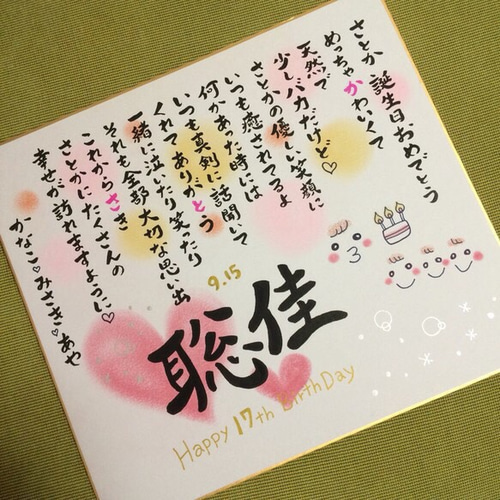 さとか 誕生日おめでとう
めっちゃかわいくて
天然で
少しバカだけど♡
さとかの優しい笑顔に
いつも癒されてるよ
何かあった時には
いつも真剣に話聞いて
くれてありがとう
一緒に泣いたり笑ったり
それも全部大切な思い出
これからさき
さとかにたくさんの
幸せが訪れますように♡
かなこ♡みさき♡あや
9.15
聡佳
Happy 17th BirthDay